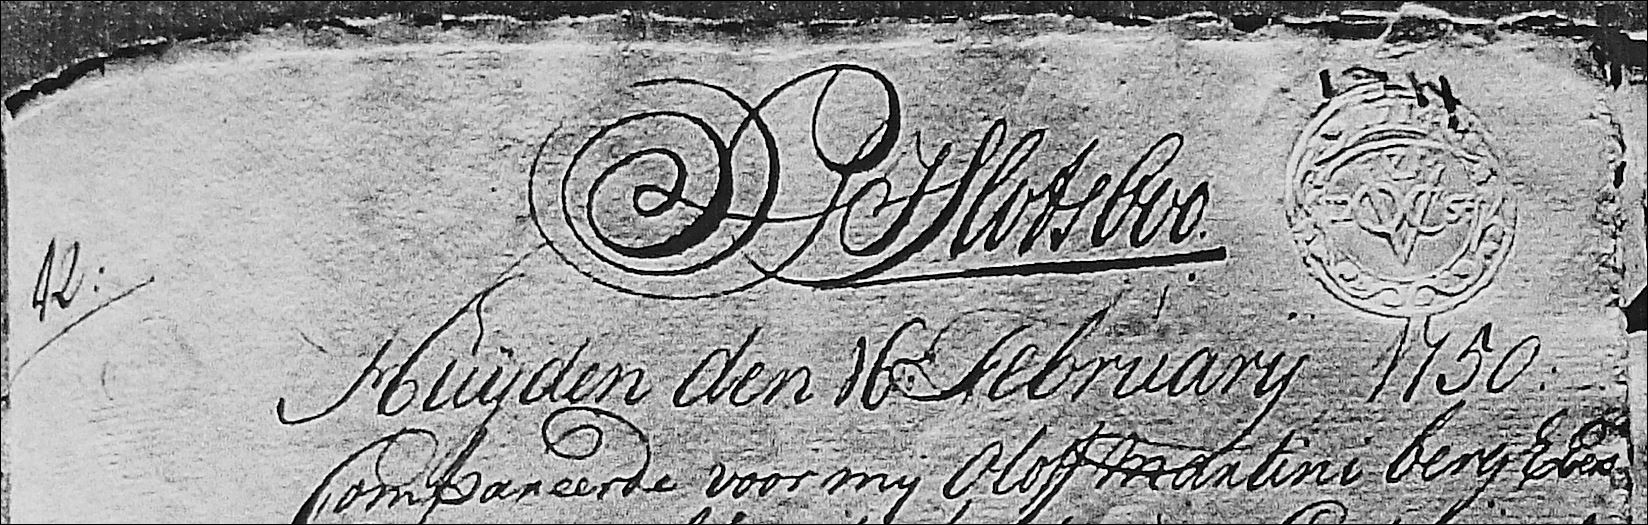 P Hlotsboo.
12:
Huÿden den 16: February 1750.
Compareerde voor mij Oloff Martini berg